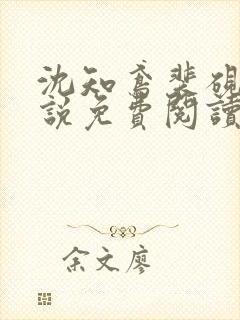 沈知鸢裴砚
說免費閱讀
余文廖